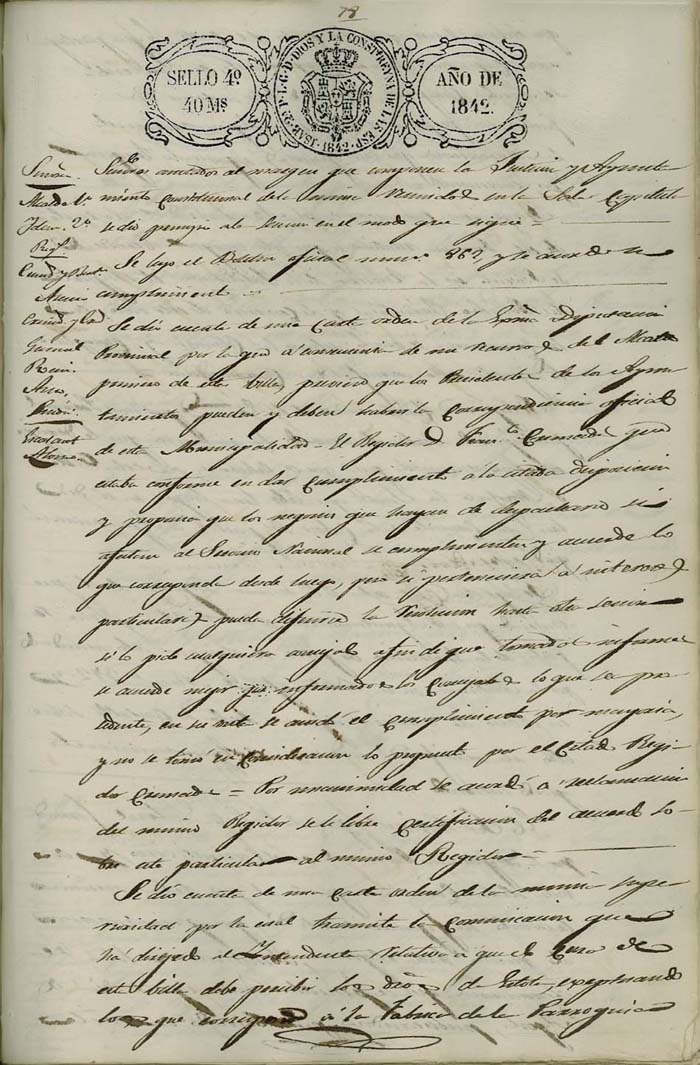 78
SELLO 4º
40 Ms
ISAB. 2ª P. L. G. D. DIOS Y LA CONST. REYNA DE LAS ESP.
1842
AÑO DE
1842.
Señores
Alcalde 1º
Idem 2º
Señores anotados al margen que componen la Justicia y Ayunta
miento Constitucional de la misma reunidos en la Sala Capitular
se dio principio a la sesion en el modo que sigue =
Se leyo el Boletin oficial num.º y se acordó su
cumplimiento
Se dio cuenta de una Carta orden de la Exma Diputacion
Provincial por la que á consecuencia de un recurso del Alcalde
primero de esta Villa, previene que los Presidentes de los Ayun
tamientos pueden y deben la Correspondencia oficial
de esta Municipalidad = El Regidor D. Franco que
estaba conforme en dar cumplimiento á la citada disposicion
y proponia que los negocios que hayan de despacharse si
afectan al Servicio Nacional se cumplimenten y acuerde lo
que corresponda desde luego, pero si pertenecieran á interes
particulares pueda diferirse la resolucion hasta otra sesion
si lo pide cualquiera concejal a fin de que tomados informes
se acuerde mejor informados los Concejales lo que sea pro
cedente, en su vista se acordó el cumplimiento por mayoria,
y no se tomó en consideracion lo propuesto por el Citado Regi-
dor = Por unanimidad se acordó á reclamacion
del mismo Regidor se le libre Certificacion del acuerdo so
bre este particular al mismo Regidor
Se dio cuenta de una carta orden de la misma supe
rioridad por la cual tramita la Comunicacion que
ha dirigido al Intendente relativa a que el Cura de
esta Villa debe percibir los dros de Estola, exceptuando
lo que corresponde á la Fabrica de la Parroquia